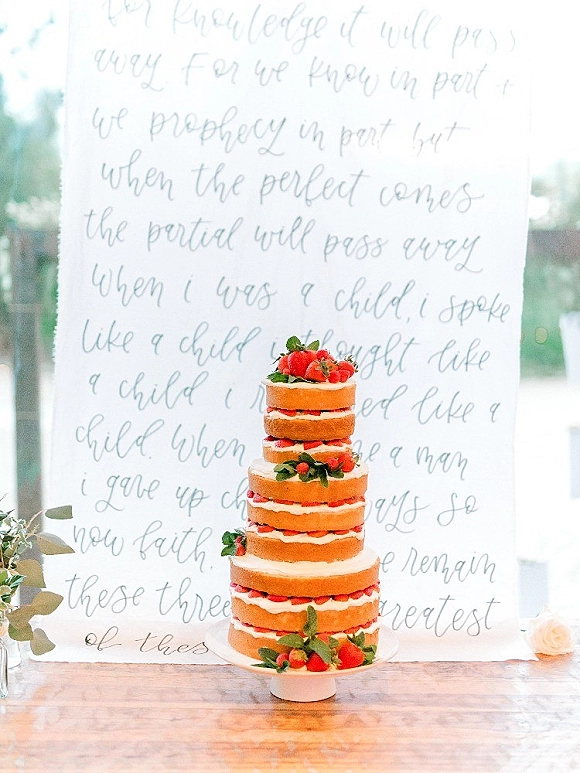 for knowledge it will pass
away. For we know in part +
we prophecy in part but
when the perfect comes
the partial will pass away
When i was a child, i spoke
like a child i thought like
a child i r ed like a
child. When me a man
i gave up ch ays so
now faith, e remain
these three greatest
of thes